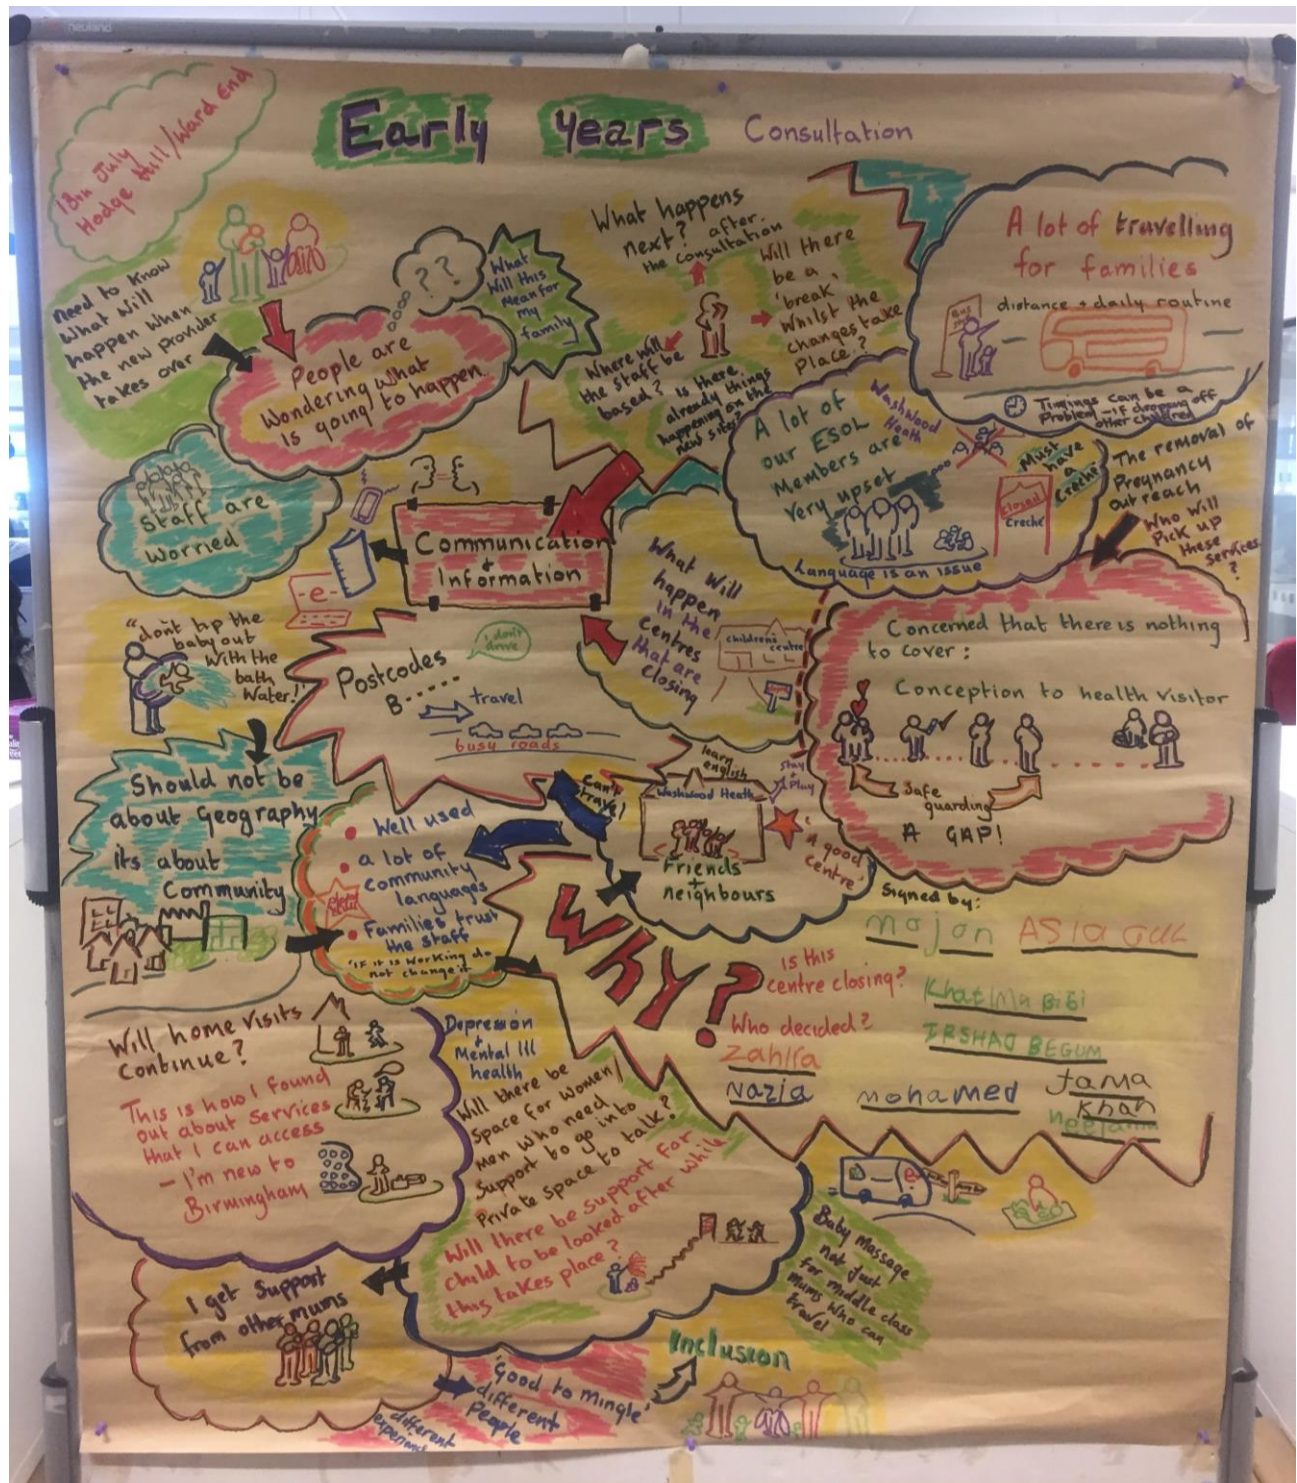 neuland
13th July
Hodge Hill/Ward End
Early Years Consultation
need to know
What Will
happen when
the new provider
takes over
People are
Wondering what
is going to happen...
??
What
Will this
Mean for
my
family
What happens
next? after
the consultation
Will there
be a
'break'
Whilst the
changes take
Place?
Where will
the staff be
based?
is there
already things
happening on the
new sites?
A lot of travelling
for families
distance + daily routine
Bus
Timings can be a
Problem - if dropping off
other children
Staff are
worried
Communication
+
Information
-e-
A lot of
our ESOL
Members are
very upset
Washwood
Heath
Must
have
a
Creche
Closed
Creche
Language is an issue
The removal of
Pregnancy
outreach
Who Will
Pick up
these
services
?
What Will
happen
in the
centres
that are
closing
childrens
centre
Concerned that there is nothing
to cover:
Conception to health visitor
Safe
guarding
A GAP!
"don't tip the
baby out
With the
bath
Water!"
Postcodes
B-----
I don't
drive
travel
busy roads
Should not be
about Geography
its about
Community
Well used
a lot of
community
languages
Families trust
the staff
'if it is working do
not change it
can't
travel
learn
english
Washwood Heath
Stay
+
Play
'A good
centre'
Friends
+
neighbours
WHY?
is this
centre closing?
Who decided?
Signed by:
mojon
ASIA GUL
Khatma Bibi
IRSHAD BEGUM
Zahira
Nazia
mohamed
fama
Khan
Will home visits
Continue?
This is how I found
out about Services
that I can access
- I'm new to
Birmingham
Depression
+
Mental Ill
health
Will there be
Space for Women/
Men who need
Support to go into
Private space to talk?
Will there be support for
child to be looked after while
this takes place?
I get Support
from other mums
Baby Massage
not just
for middle class
mums who can
travel
'Good to mingle'
different
people
different
experience
Inclusion